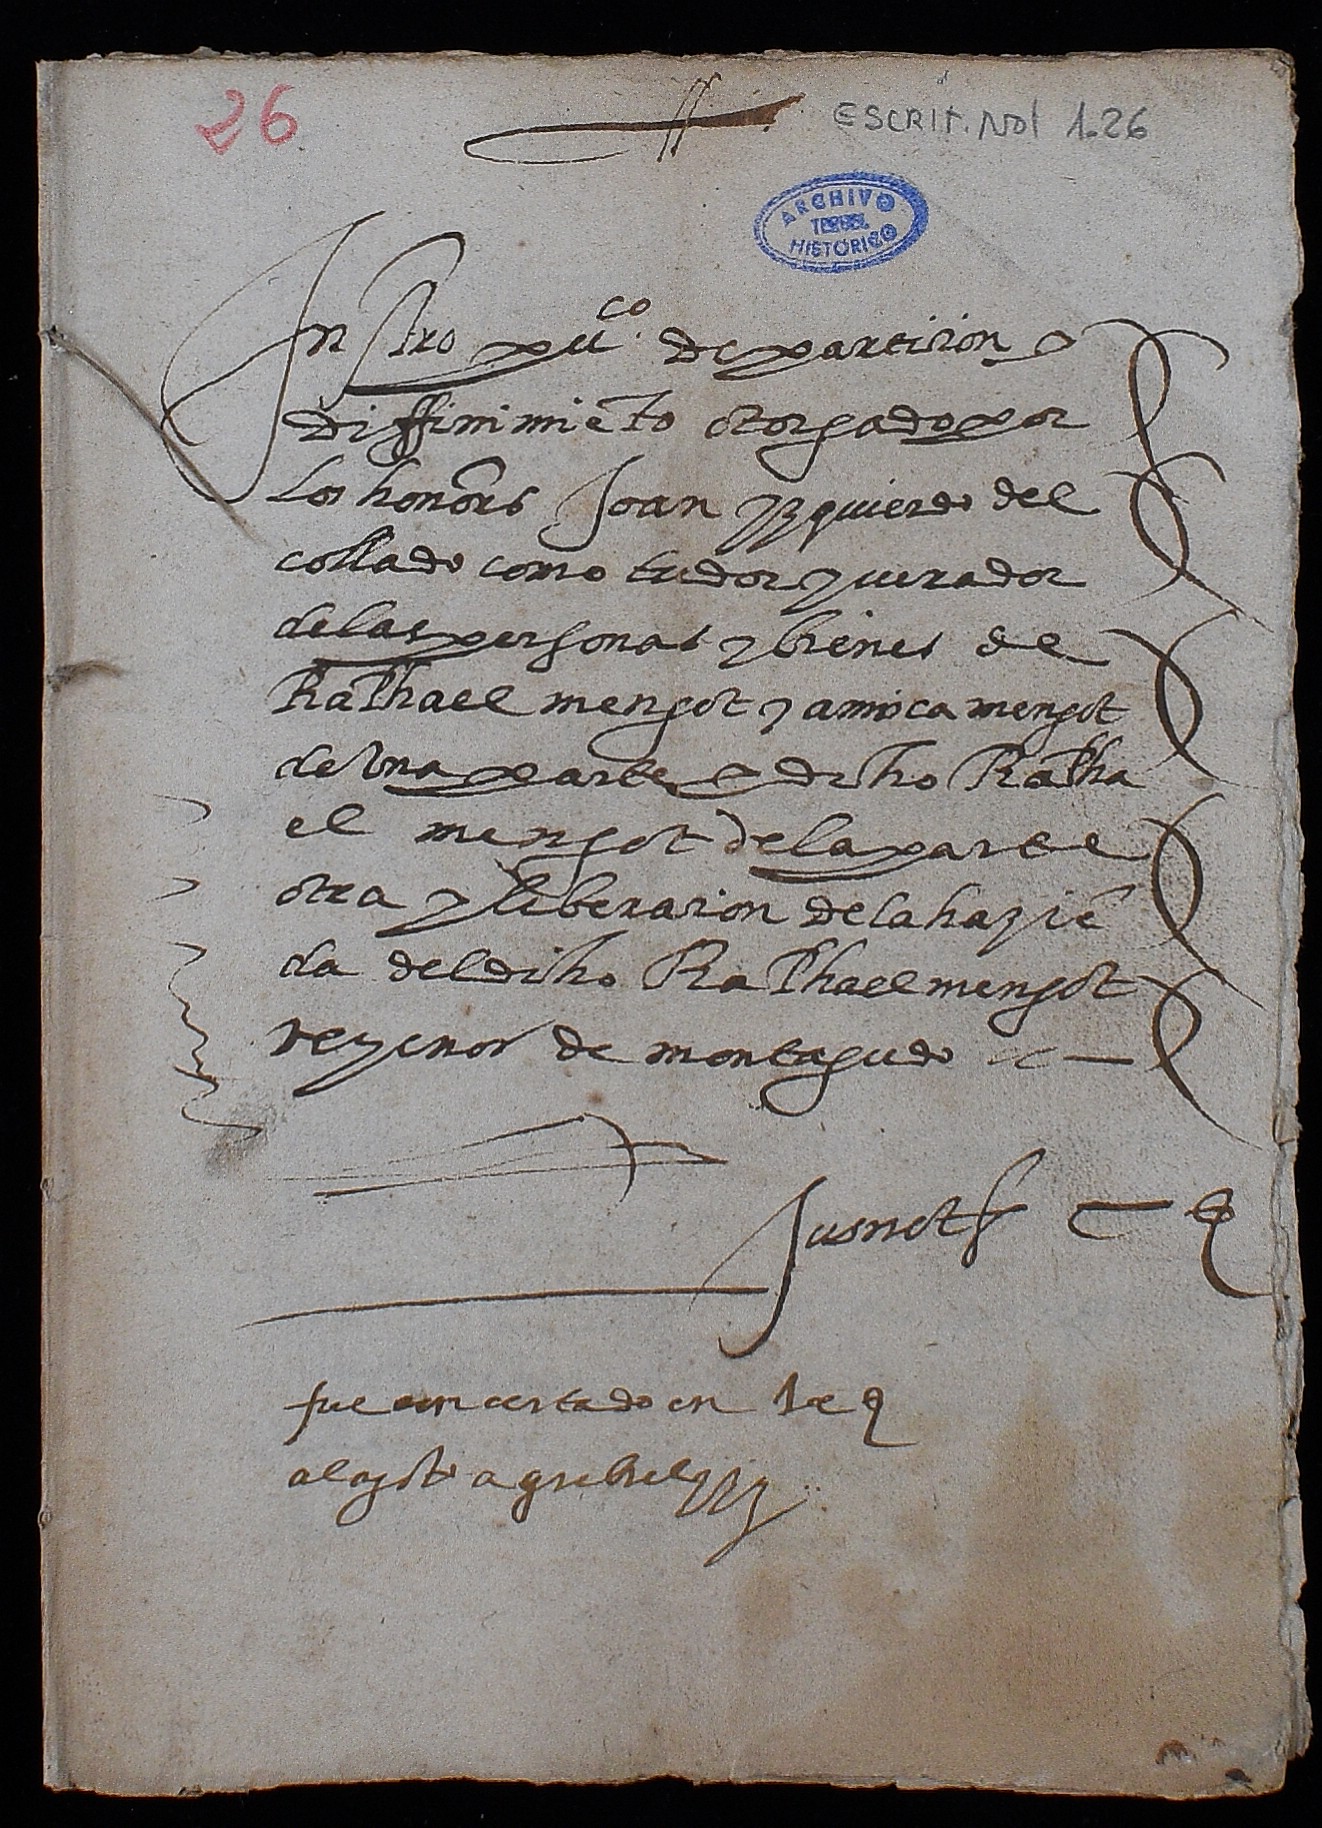 26
ESCRIT. Not 1.26
ARCHIVO
TERUEL
HISTÓRICO
Instro puco. de particion y
diffinimiẽto otorgado por
los honors Joan yzquierdo del
collado como tudor y curador
de las personas y bienes de
Raphael mengot y amica mengot
de una parte y dicho Rapha
el mengot de la parte
otra y liberacion de la haziẽ
da del dicho Raphael mengot
vezinos de montagudo
fue concertado en